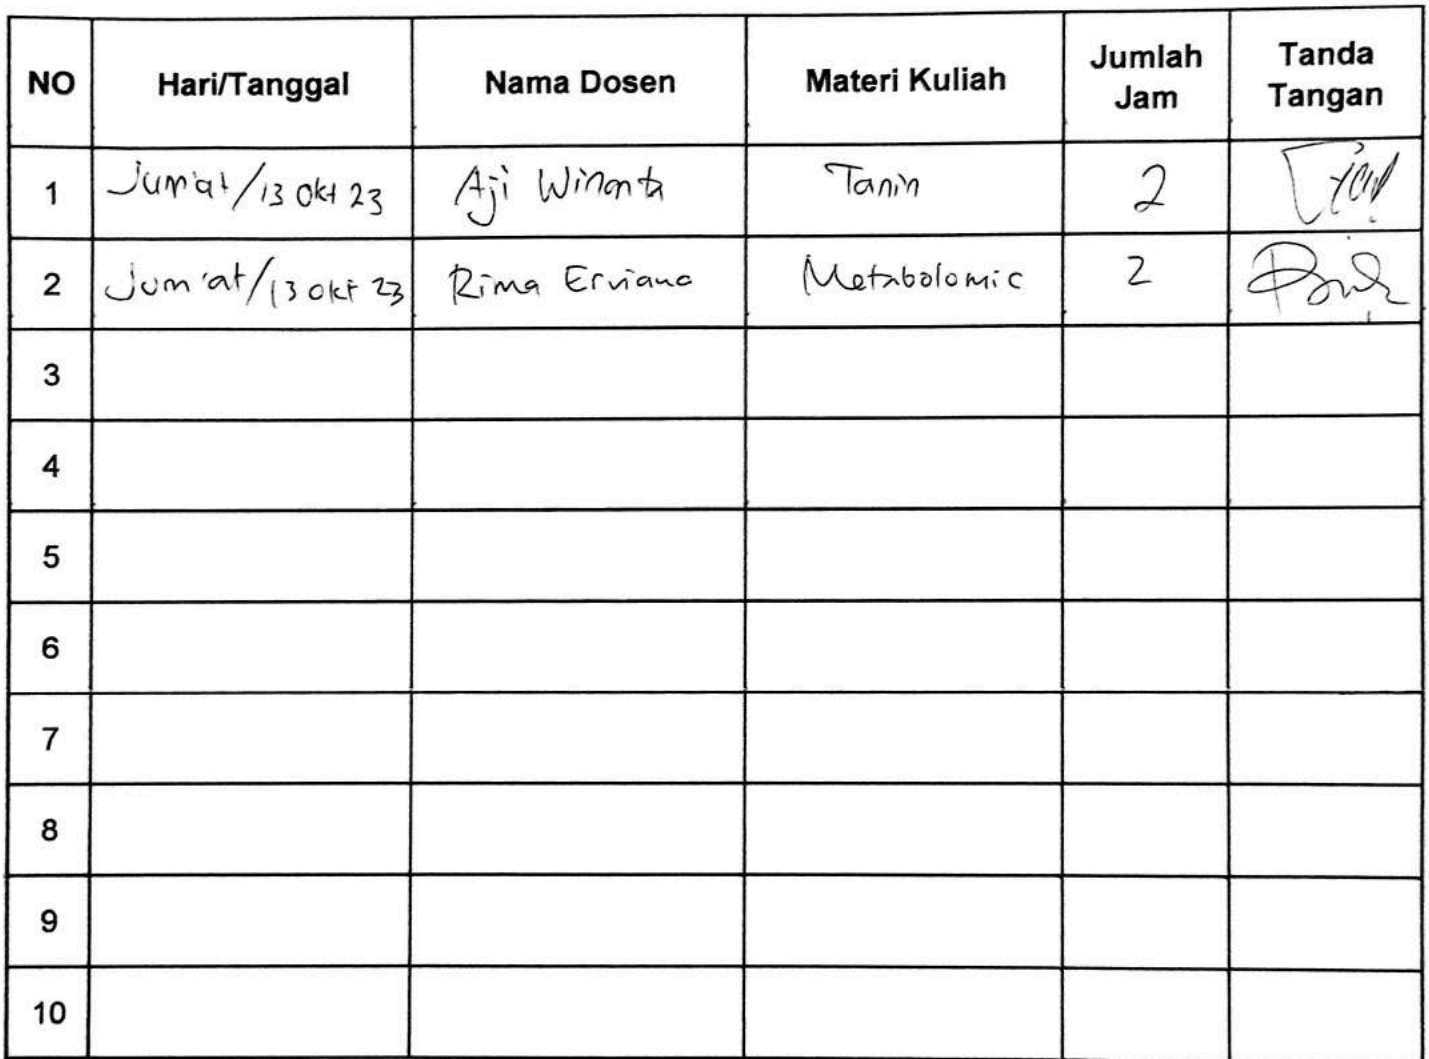 NO Hari/Tanggal Nama Dosen Materi Kuliah Jumlah Jam Tanda Tangan
1 Jum'at/13 Okt 23 Aji Winanta Tanin 2
2 Jum'at/13 okt 23 Rima Erviana Metabolomic 2
3
4
5
6
7
8
9
10